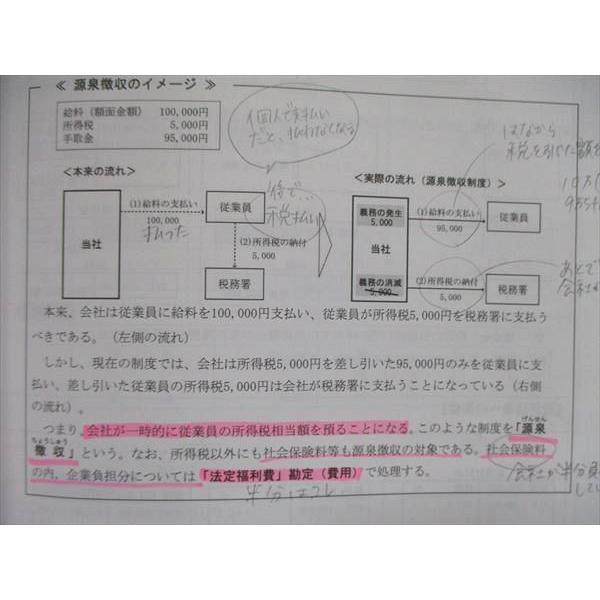 ≪ 源泉徴収のイメージ ≫
給料（額面金額） 100,000円
所得税 5,000円
手取金 95,000円
個人で支払い
だと、払わなくなる
はなから
税を引いた額を
＜本来の流れ＞
(1)給料の支払い
100,000
払った
当社
従業員
後で...
税払い
(2)所得税の納付
5,000
税務署
＜実際の流れ（源泉徴収制度）＞
義務の発生
5,000
(1)給料の支払い
95,000
従業員
当社
義務の消滅
5,000
(2)所得税の納付
5,000
税務署
あとで
会社が
本来、会社は従業員に給料を100,000円支払い、従業員が所得税5,000円を税務署に支払う
べきである。（左側の流れ）
しかし、現在の制度では、会社は所得税5,000円を差し引いた95,000円のみを従業員に支
払い、差し引いた従業員の所得税5,000円は会社が税務署に支払うことになっている（右側
の流れ）。
つまり、会社が一時的に従業員の所得税相当額を預ることになる。このような制度を「源泉
げんせん
徴収」という。なお、所得税以外にも社会保険料等も源泉徴収の対象である。社会保険料
ちょうしゅう
の内、企業負担分については「法定福利費」勘定（費用）で処理する。
半分はコレ
会社が半分負